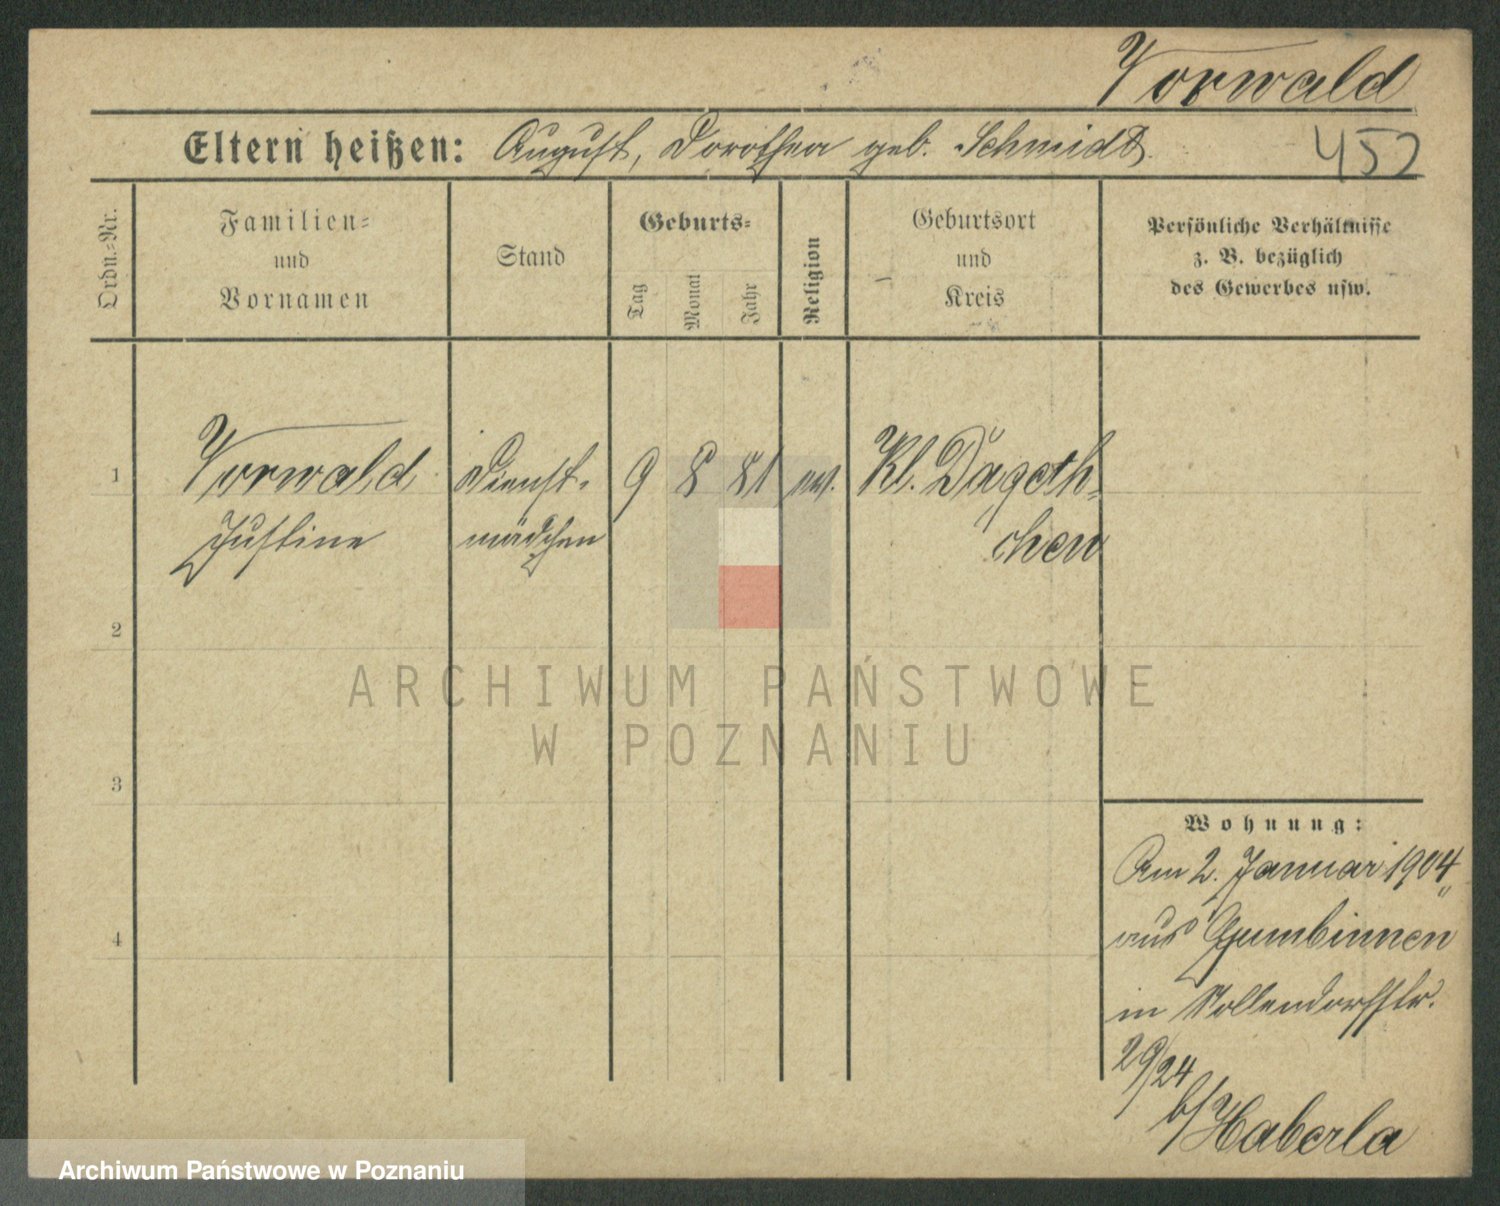 Vorwald
Eltern heißen: August, Dorothea geb. Schmidt.
452
Ordn.-Nr.
Familien-
und
Vornamen
Stand
Geburts-
Tag
Monat
Jahr
Religion
Geburtsort
und
Kreis
Persönliche Verhältnisse
z. B. bezüglich
des Gewerbes usw.
1 Vorwald Dienst- 9 8 81 ev. Kl. Dagoth-
Justine mädchen chen
2
ARCHIWUM PAŃSTWOWE
W POZNANIU
3
Wohnung:
Am 2. Januar 1904
4 aus Gumbinnen
in
29/24
b/Haberla
Archiwum Państwowe w Poznaniu